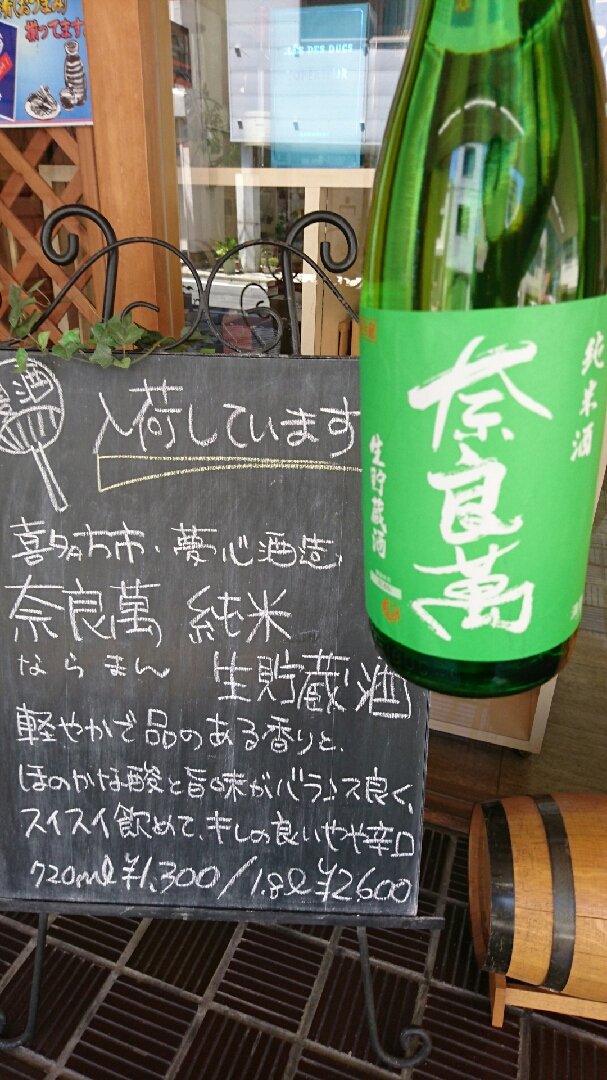 揃ってます。
酒
入荷しています
喜多方市・夢心酒造
奈良萬 純米
ならまん 生貯蔵酒
軽やかで品のある香りと、
ほのかな酸と旨味がバランス良く、
スイスイ飲めて、キレの良いやや辛口
720ml ¥1,300/1.8l ¥2,600
純米酒
奈良萬
生貯蔵酒